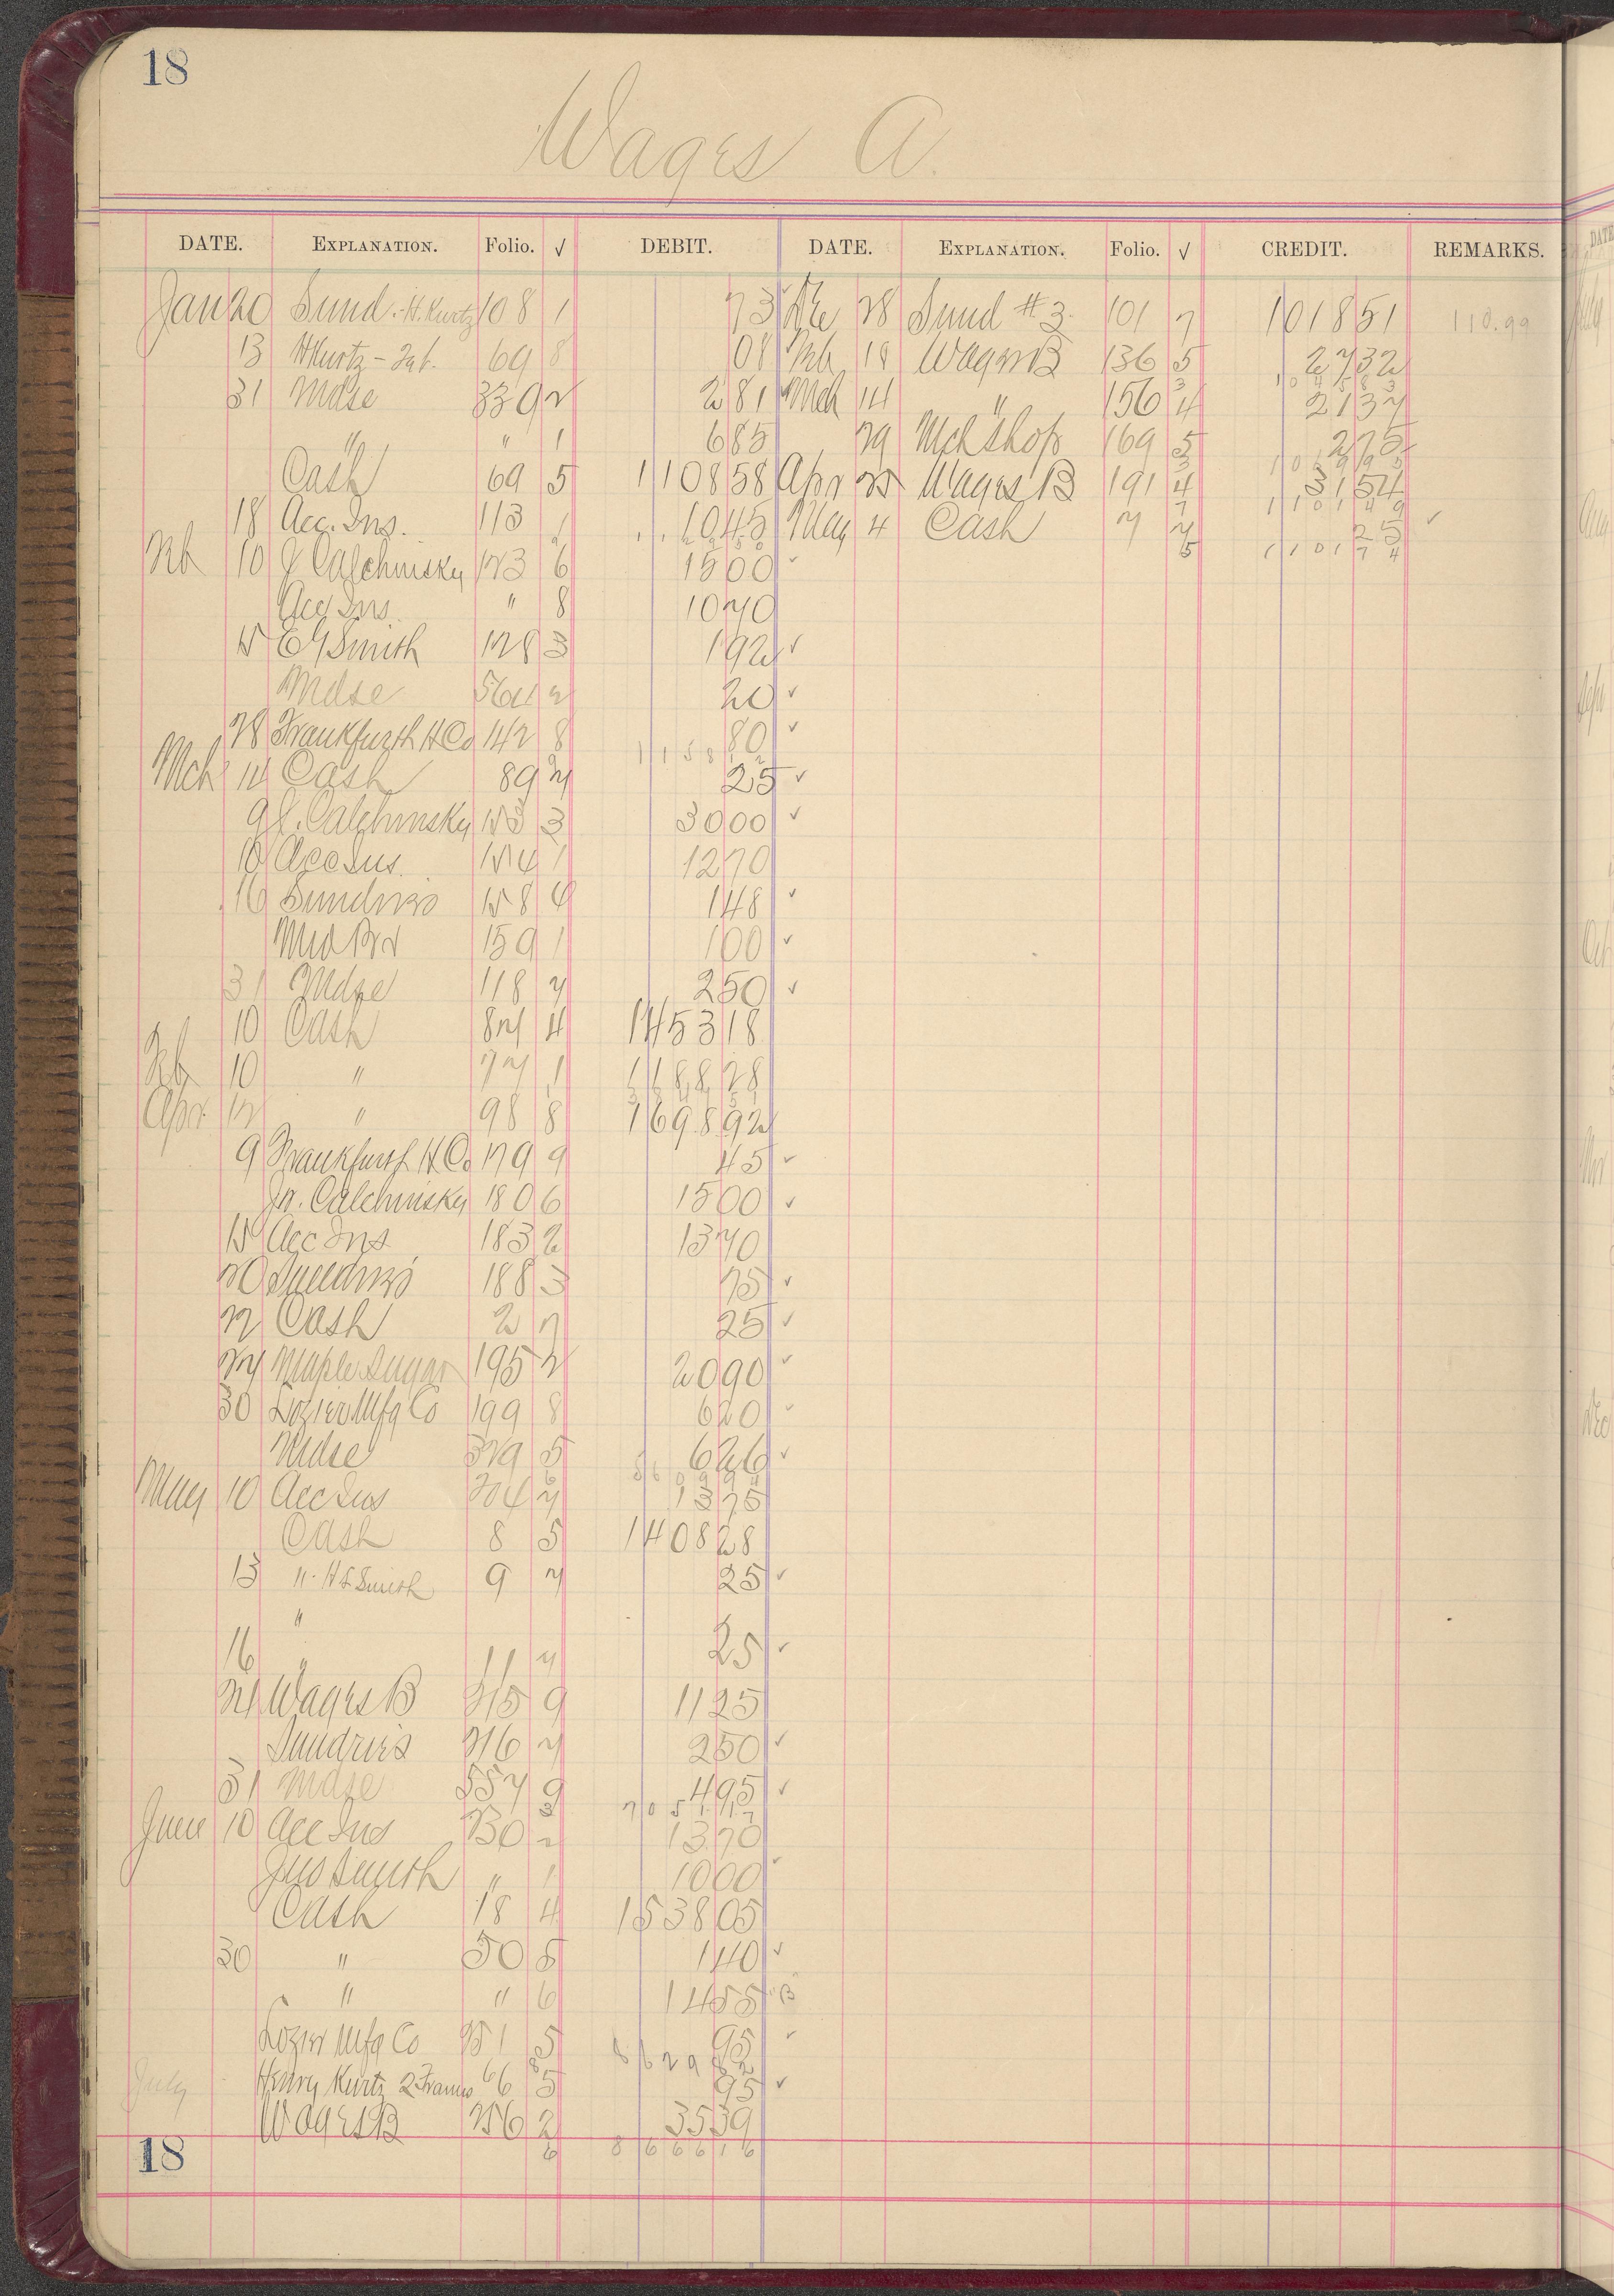 18
Wages A.
DATE. EXPLANATION. Folio. √ DEBIT. DATE. EXPLANATION. Folio. √ CREDIT. REMARKS.
Jan 20 Sund. H. Kurtz 108 1 73 28 Sund #3. 101 7 1018 51 110.99
13 H Kurtz 69 8 08 18 Wages B 136 5 27 32
31 Mdse 339 2 2 81 Mch 14 " 156 4 21 37
" " 1 6 85 29 Mch Shop 169 5 2 75
Cash 69 5 1108 58 Apr 25 Wages B 191 4 31 54
18 Acc. Ins. 113 1 10 45 May 4 Cash 7 7 25 ✓
1 1 0 1 7 4
Feb 10 J Calchinsky 123 6 15 00 ✓
Acc Ins. " 8 10 70
15 E G Smith 128 3 1 92 ✓
Mdse 564 2 20 ✓
28 Frankfurth H Co 142 8 80 ✓
Mch 14 Cash 89 7 25 ✓
9 J. Calchinsky 153 3 30 00 ✓
10 Acc Ins. 154 1 12 70
16 Sundries 158 4 1 48 ✓
159 1 1 00 ✓
31 Mdse 118 7 2 50 ✓
10 Cash 87 4 1453 18
Feb 10 " 77 1 1188 28
Apr. 12 " 98 8 1698 92
9 Frankfurth H Co 179 9 45 ✓
Jn. Calchinsky 180 6 15 00 ✓
15 Acc Ins 183 2 13 70
20 Sundries 188 3 75 ✓
22 Cash 2 7 25 ✓
27 Maple Sugar 195 2 20 90 ✓
30 Lozier Mfg Co 199 8 6 20 ✓
Mdse 379 5 6 26 ✓
May 10 Acc Ins 204 7 13 75
Cash 8 5 1408 28
13 ". H S Smith 9 7 25 ✓
"
16 " 11 7 25 ✓
21 Wages B 215 9 11 25
Sundries 216 7 2 50 ✓
31 Mdse 557 9 4 95 ✓
June 10 Acc Ins 230 2 13 70
Jno Smith " 1 10 00 ✓
Cash 18 4 1538 05
30 " 50 5 1 40 ✓
" " 6 14 55 B
Lozier Mfg Co 251 5 95 ✓
July Henry Kurtz 2 Frames 66 5 95 ✓
Wages B 256 2 35 39
6 8 6 6 6 1 6
18